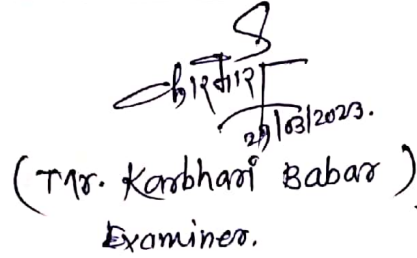 /03/2023.
(Mr. Karbhari Babar)
Examiner.